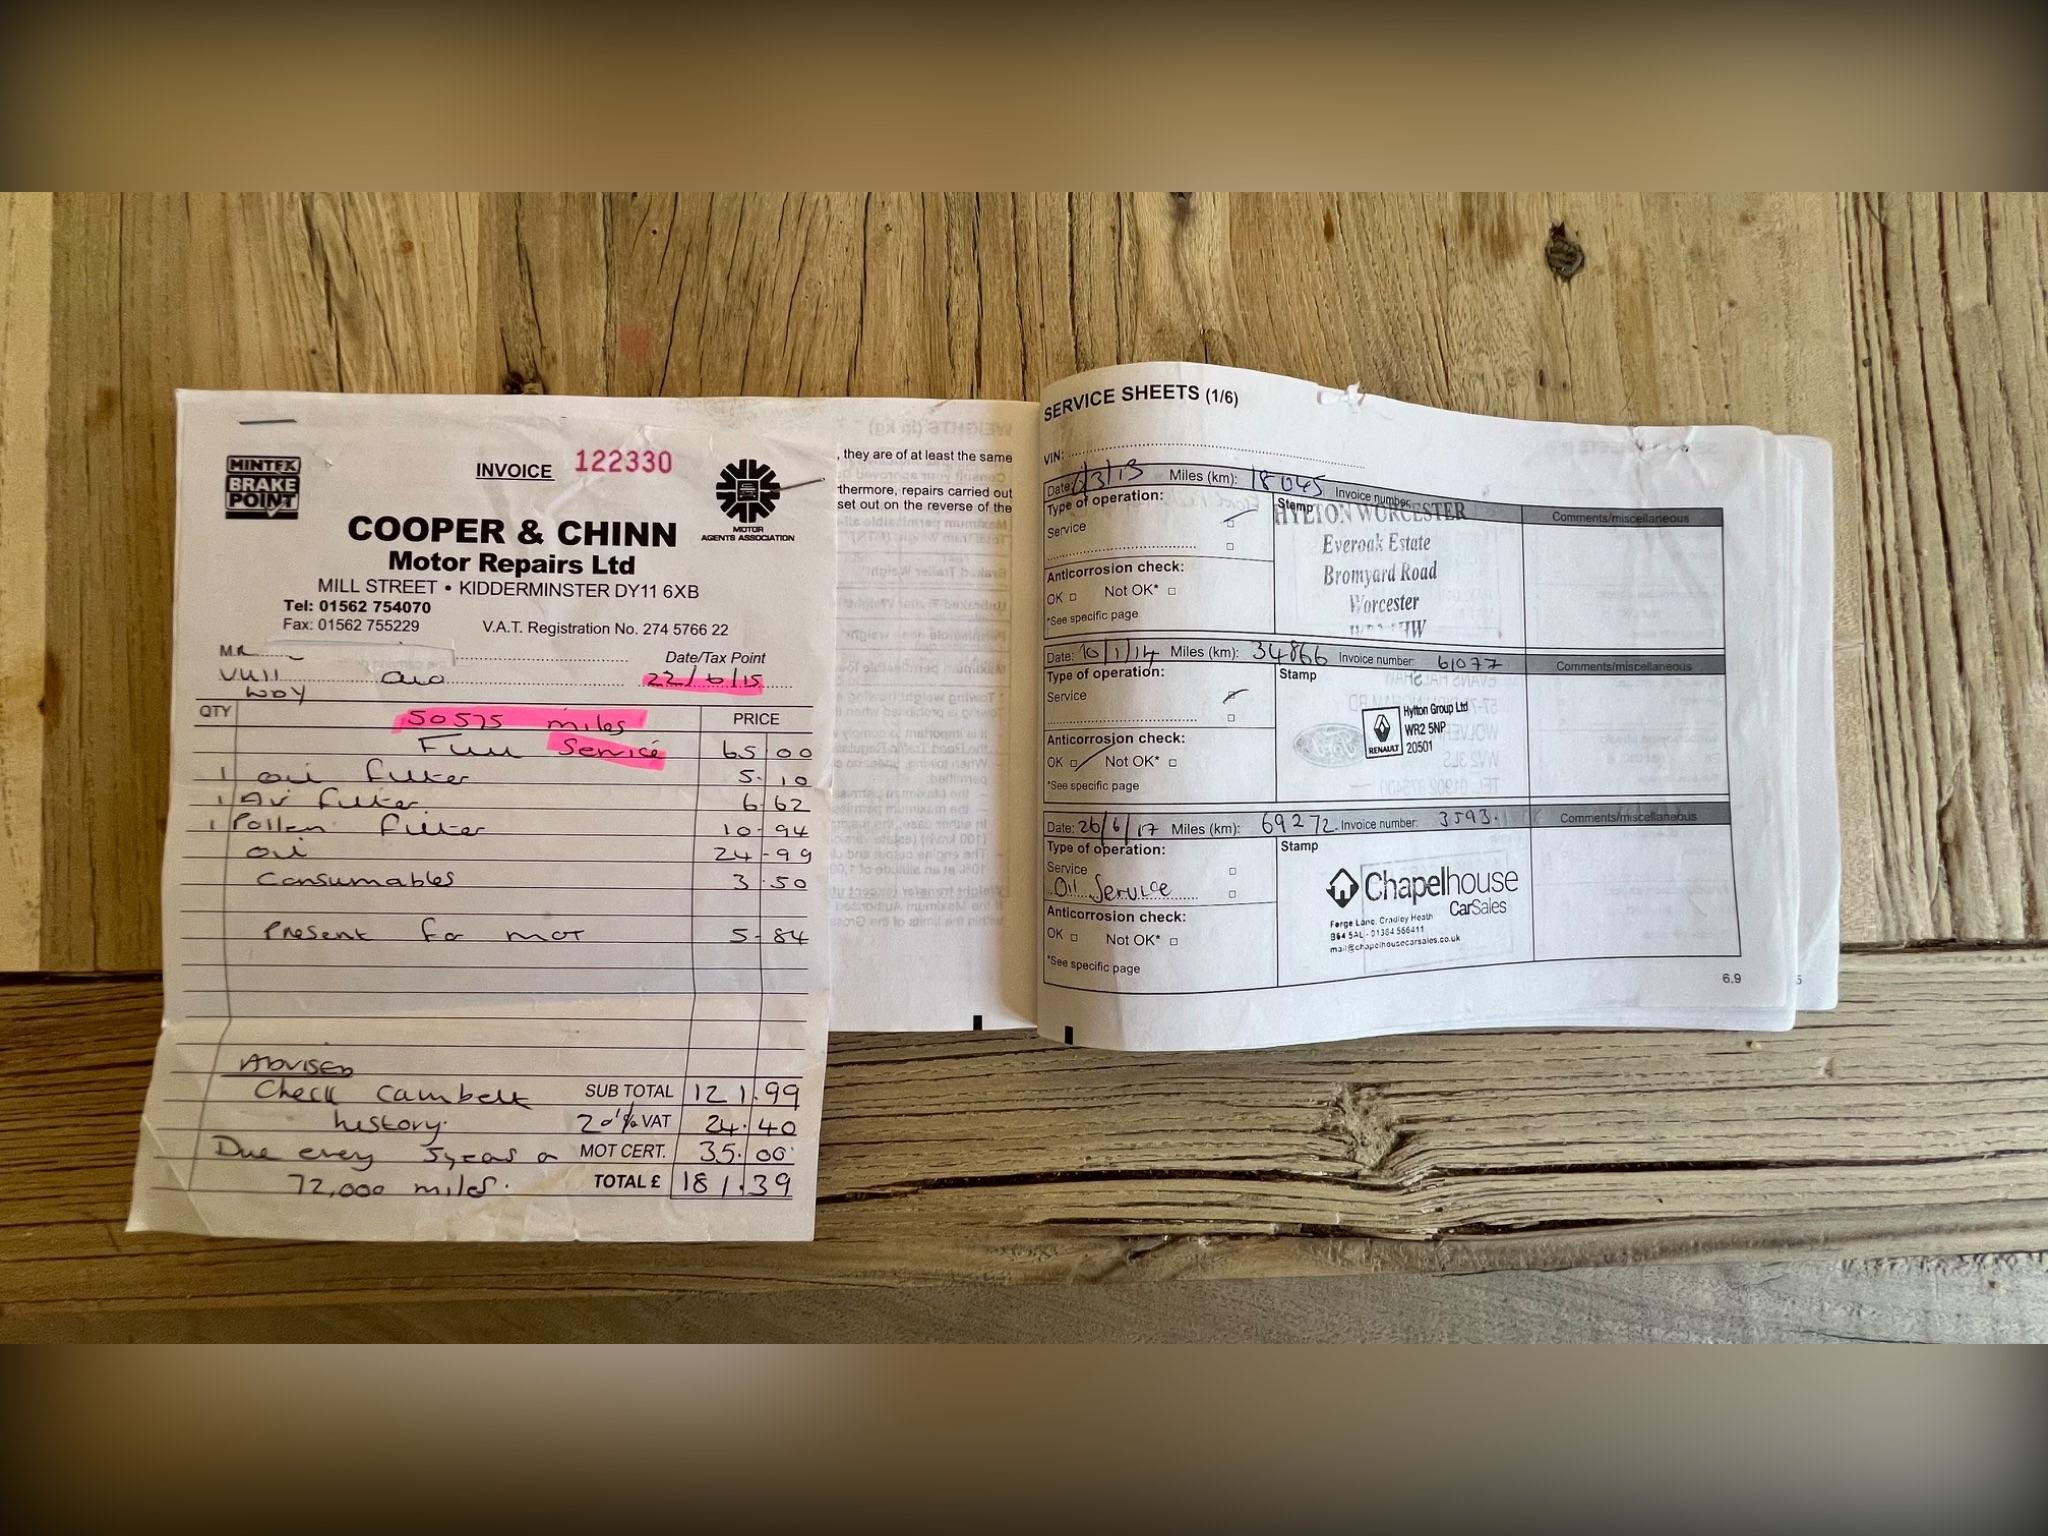 MINTEX
BRAKE
POINT
INVOICE 122330
MOTOR
AGENTS ASSOCIATION
COOPER & CHINN
Motor Repairs Ltd
MILL STREET • KIDDERMINSTER DY11 6XB
Tel: 01562 754070
Fax: 01562 755229
V.A.T. Registration No. 274 5766 22
MR
Date/Tax Point
VU11 WDY Clio 22/6/15
QTY PRICE
50575 miles
Full Service 65 00
1 oil filter 5-10
1 Air filter 6 62
1 Pollen filter 10-94
oil 24-99
Consumables 3.50
Present for MOT 5-84
ADVISED
Check cambelt SUB TOTAL 121.99
history. 20% VAT 24.40
Due every 5years or MOT CERT. 35.00
72,000 miles. TOTAL £ 181.39
, they are of at least the same
thermore, repairs carried out
set out on the reverse of the
SERVICE SHEETS (1/6)
VIN:
Date: /3/13 Miles (km): 18045 Invoice number:
Type of operation: Stamp Comments/miscellaneous
Service
Anticorrosion check:
OK Not OK*
*See specific page
HYLTON WORCESTER
Everoak Estate
Bromyard Road
Worcester
Date: 10/1/14 Miles (km): 34866 Invoice number: 61077 Comments/miscellaneous
Type of operation: Stamp
Service
Anticorrosion check:
OK Not OK*
*See specific page
RENAULT
Hylton Group Ltd
WR2 5NP
20501
Date: 26/6/17 Miles (km): 69272. Invoice number: 3593. Comments/miscellaneous
Type of operation: Stamp
Service
Oil Service
Anticorrosion check:
OK Not OK*
*See specific page
Chapelhouse
CarSales
Forge Lane, Cradley Heath
B64 5AL - 01384 566411
mail@chapelhousecarsales.co.uk
6.9
5